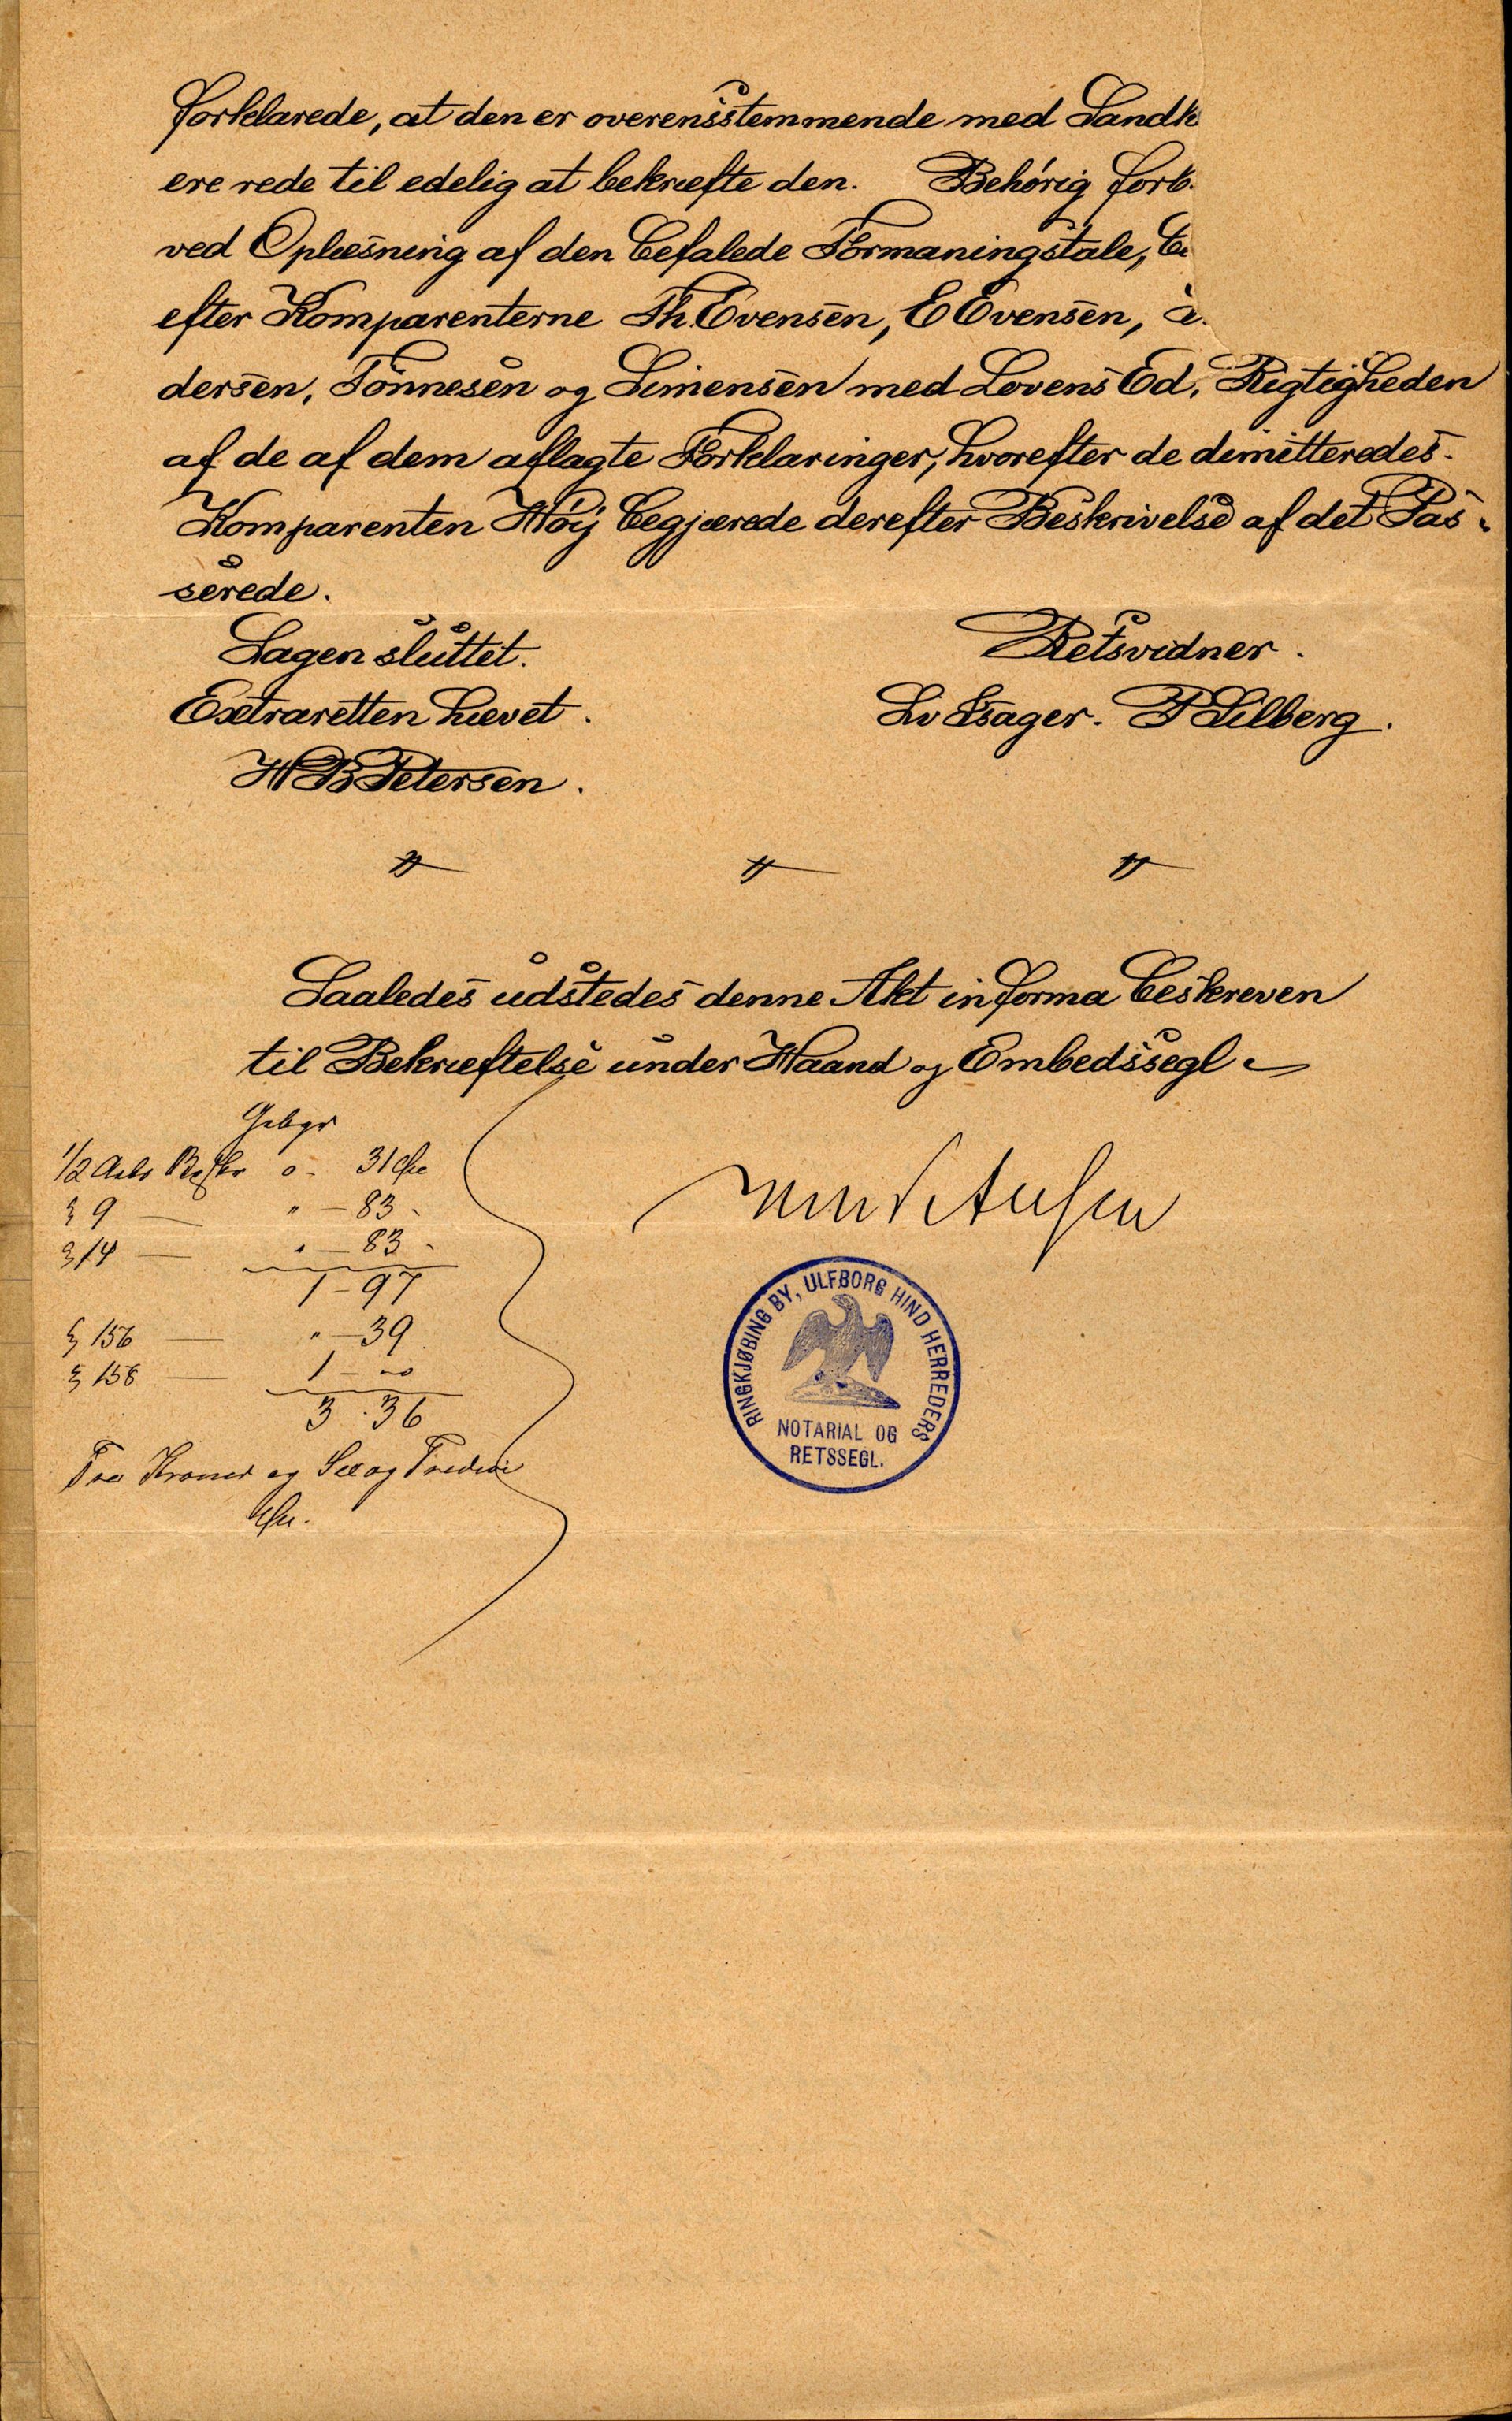 forklarede, at den er overensstemmende med Sandh
ere rede til edelig at bekræfte den. Behørig forb.
ved Oplæsning af den befalede Formaningstale, be
efter Komparenterne Th. Evensen, E Evensen, A.
dersen, Tönnesen og Simensen med Lovens Ed, Rigtigheden
af de af dem aflagte Forklaringer, hvorefter de dimitteredes.
Komparenten Höy begjærede derefter Beskrivelse af det Pas-
serede.
Sagen sluttet.
Retsvidner.
Extraretten hævet.
Lv Esager. P Silberg.
H B Petersen.
Saaledes udstedes denne Akt in forma beskreven
til Bekræftelse under Haand og Embedssegl
Gebyr
1/2 Arks Beskr 0 - 31 Øre
§ 9 — " - 83 -
§ 14 — " - 83 -
1 - 97
§ 156 — " - 39
§ 158 — 1 - "
3 . 36
Tre Kroner og Sex og Tredive
Øre.
RINGKJØBING BY, ULFBORG HIND HERREDERS
NOTARIAL OG
RETSSEGL.